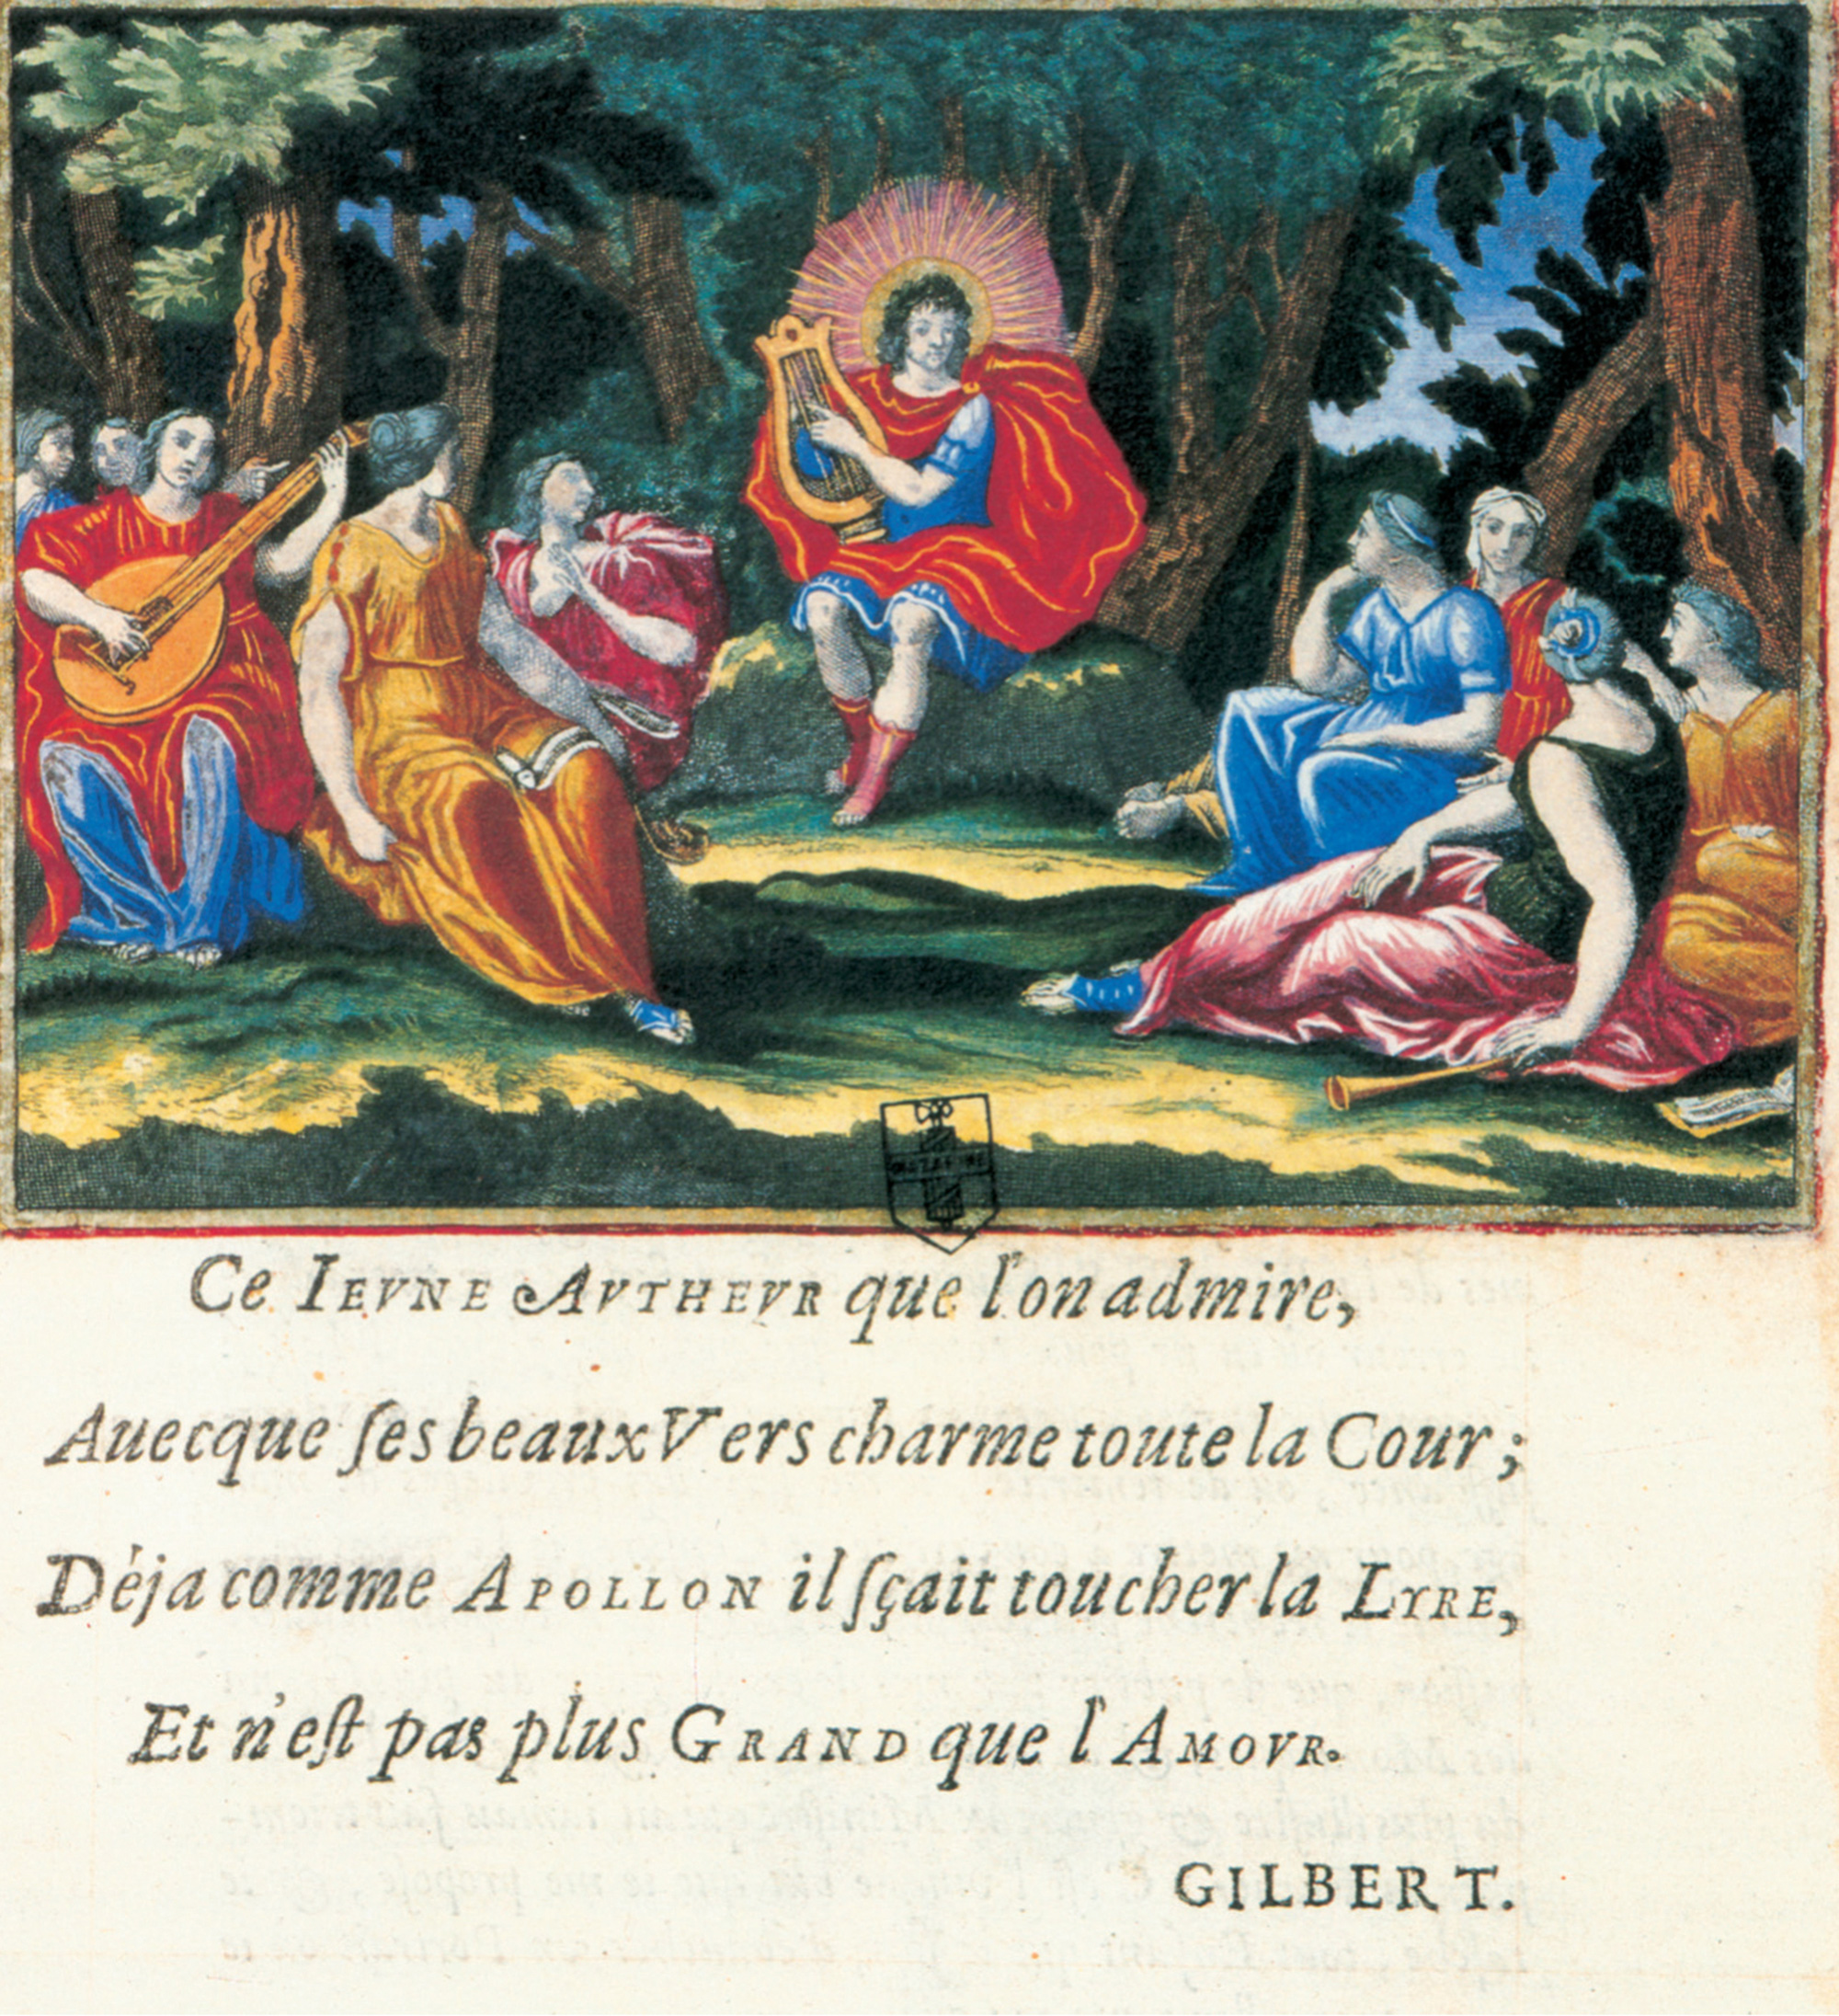 MAZARINE
Ce IEVNE AVTHEVR que l'on admire,
Auecque ſes beaux Vers charme toute la Cour;
Dèja comme APOLLON il ſçait toucher la LYRE,
Et n'eſt pas plus GRAND que l'AMOVR.
GILBERT.